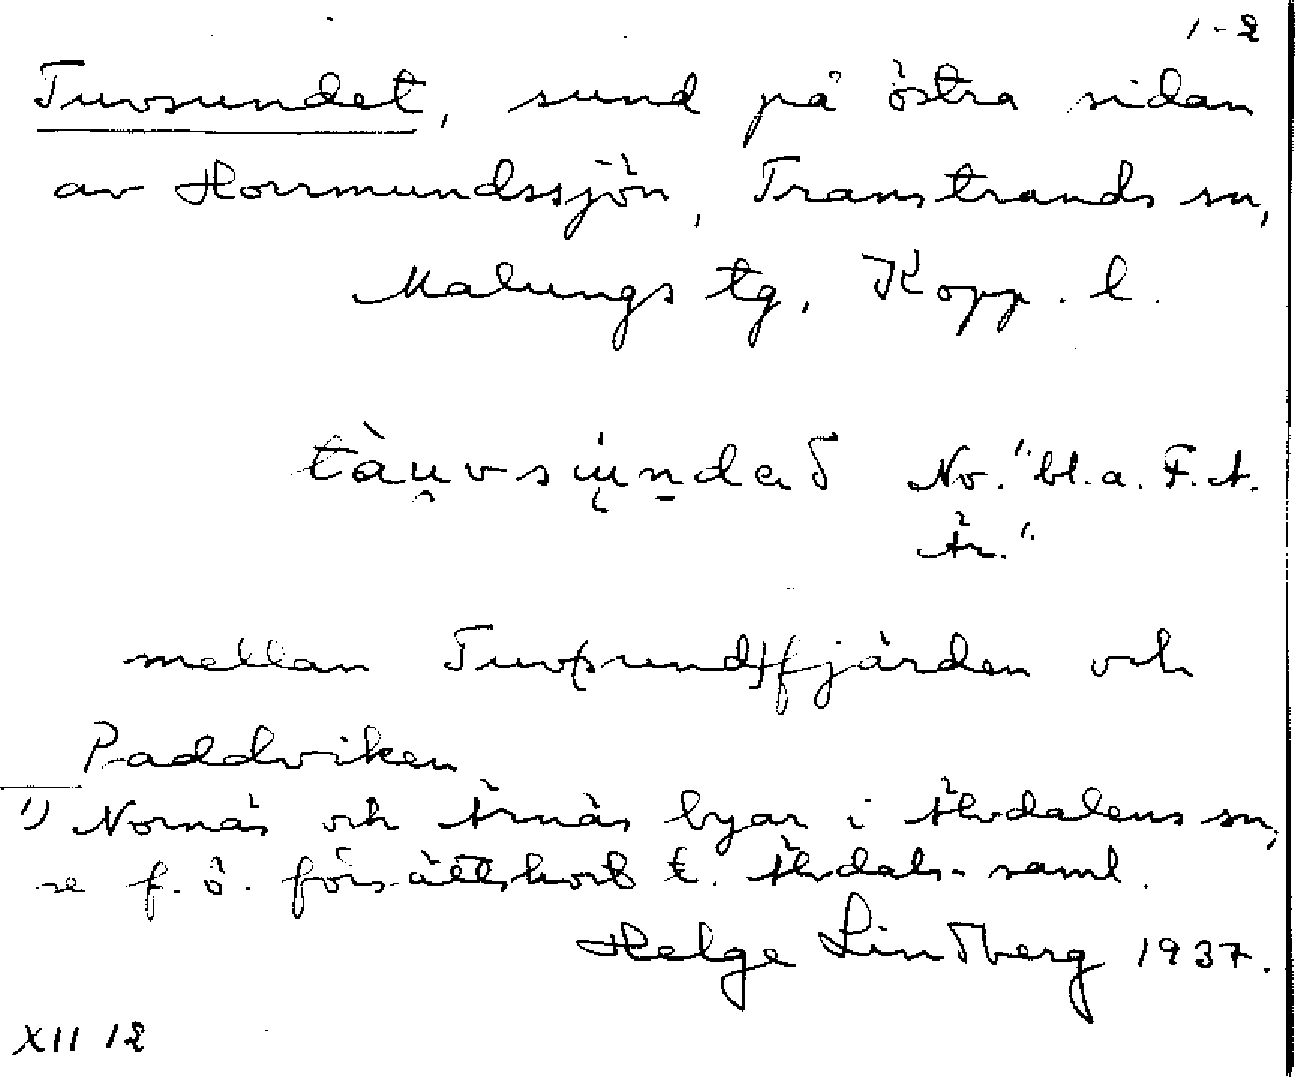 1-2
Tuvsundet, sund på östra sidan
av Horrmundssjön, Transtrands sn,
Malungs tg, Kopp. l.
tàu̯vsu̯ṉdað No. "bl.a. F.A.
Är."
mellan Tuv(sund)fjärden och
Paddviken
1) Nornäs och Ärnäs byar i Älvdalens sn,
se f. ö. försättskort t. Älvdals-saml.
Helge Lindberg 1937.
XII 12